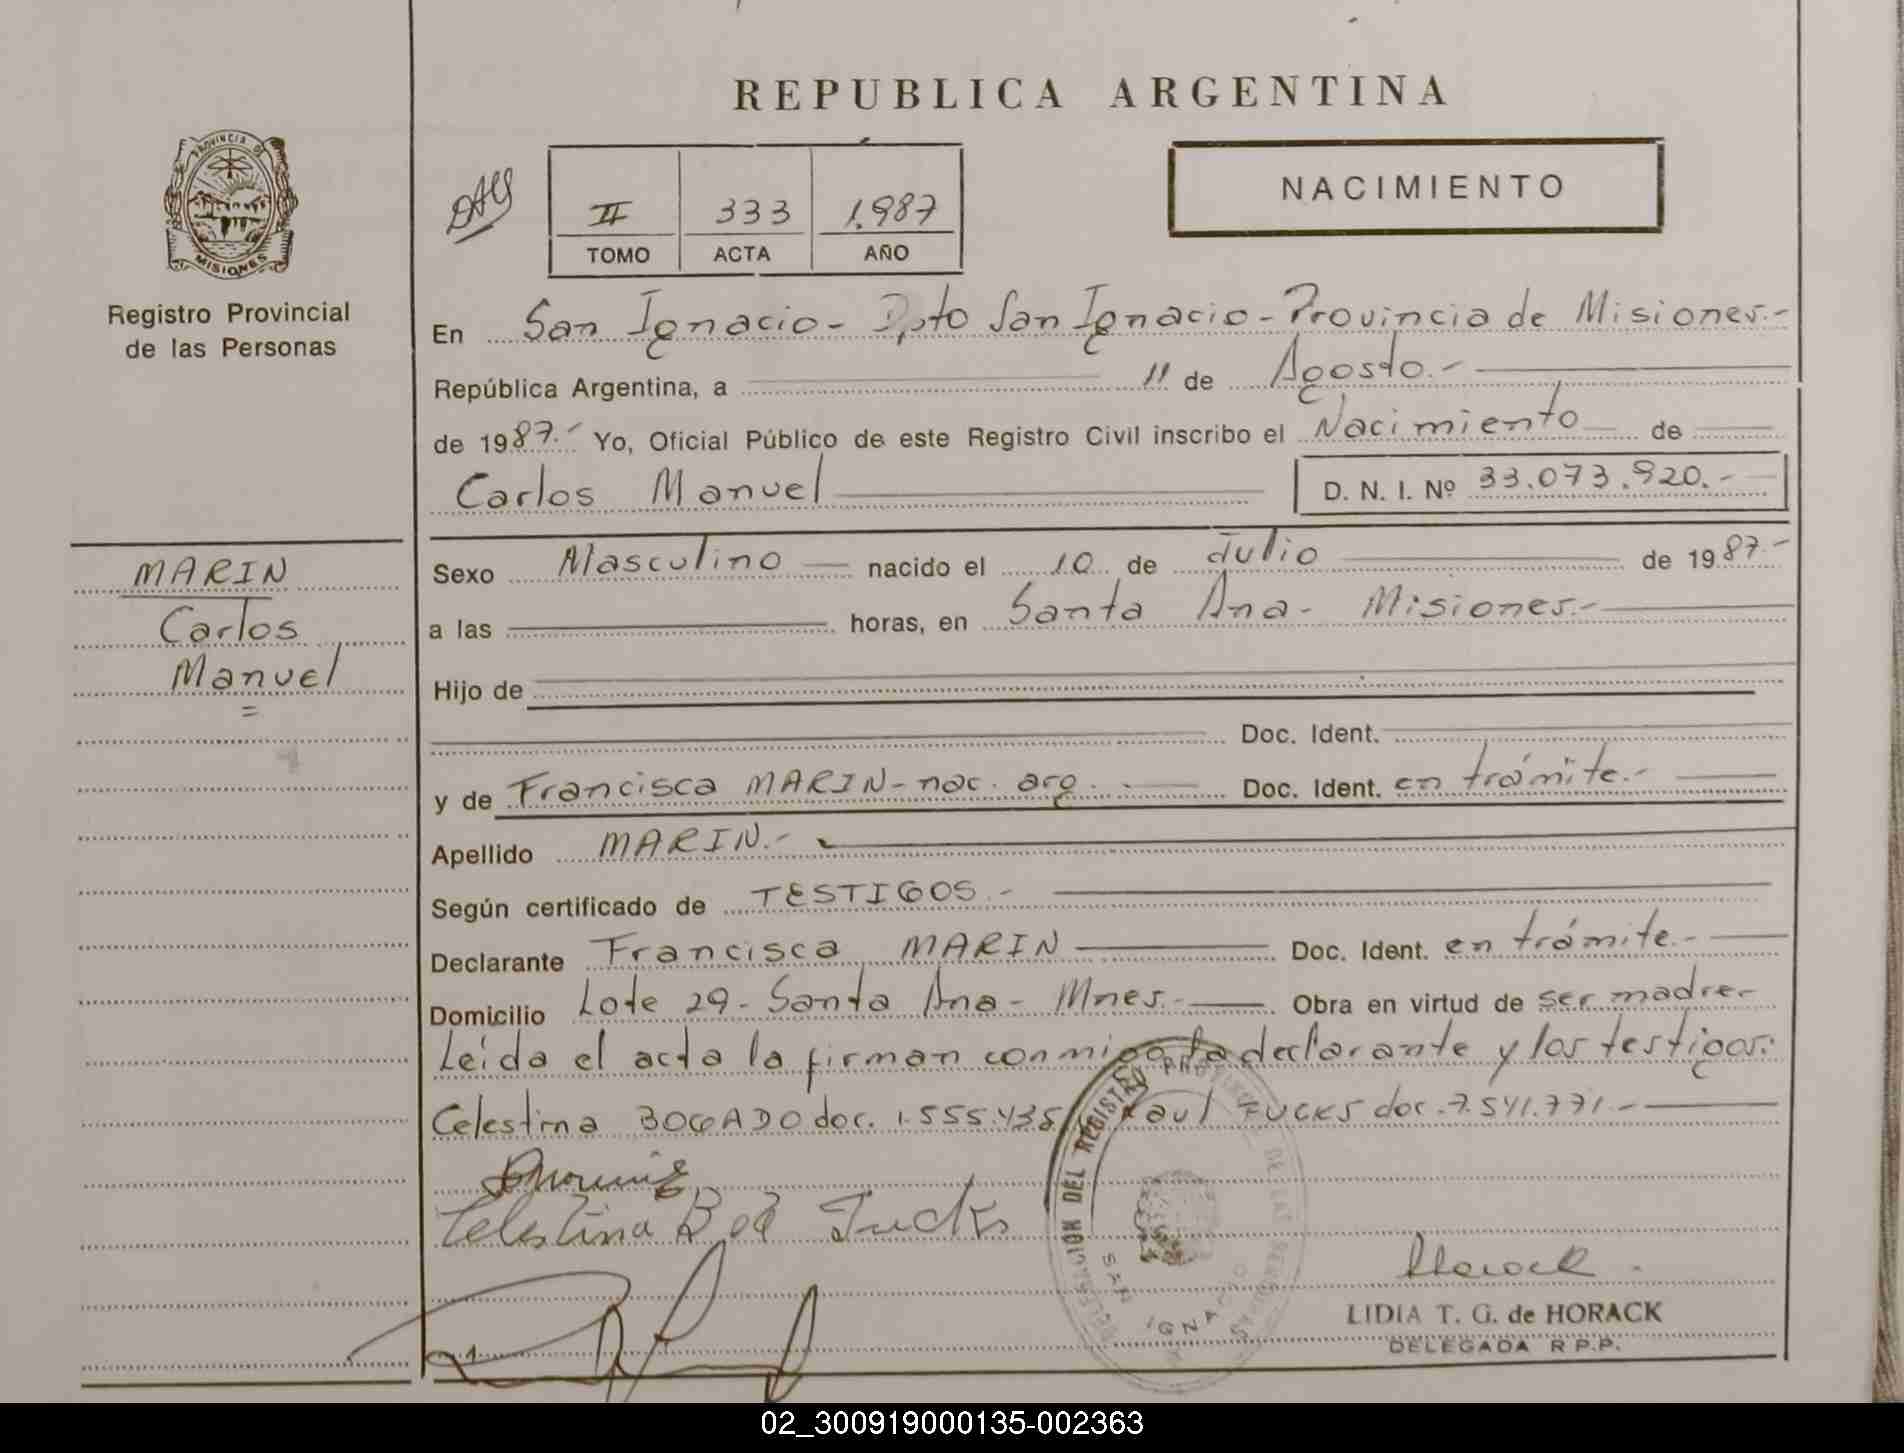 REPUBLICA ARGENTINA
PROVINCIA DE
MISIONES
Registro Provincial
de las Personas
II 333 1.987
TOMO ACTA AÑO
NACIMIENTO
En San Ignacio - Dpto San Ignacio - Provincia de Misiones.-
República Argentina, a 11 de Agosto.-
de 1987.- Yo, Oficial Público de este Registro Civil inscribo el Nacimiento de
Carlos Manuel D. N. I. Nº 33.073.920.-
MARIN
Carlos
Manuel
=
Sexo Masculino nacido el 10 de Julio de 1987.-
a las horas, en Santa Ana - Misiones.-
Hijo de
Doc. Ident.
y de Francisca MARIN - nac. arg. - Doc. Ident. en trámite.-
Apellido MARIN.-
Según certificado de TESTIGOS.-
Declarante Francisca MARIN Doc. Ident. en trámite.-
Domicilio Lote 29 - Santa Ana - Mnes.- Obra en virtud de ser madre-
Leída el acta la firman conmigo la declarante y los testigos:
Celestina BOGADO doc. 1.555.435 Raul FUCKS doc. 7.541.771.-
Celestina B de Fucks
DELEGACION DEL REGISTRO PROVINCIAL DE LAS PERSONAS
SAN IGNACIO
Horack
LIDIA T. G. de HORACK
DELEGADA R.P.P.
02_300919000135-002363